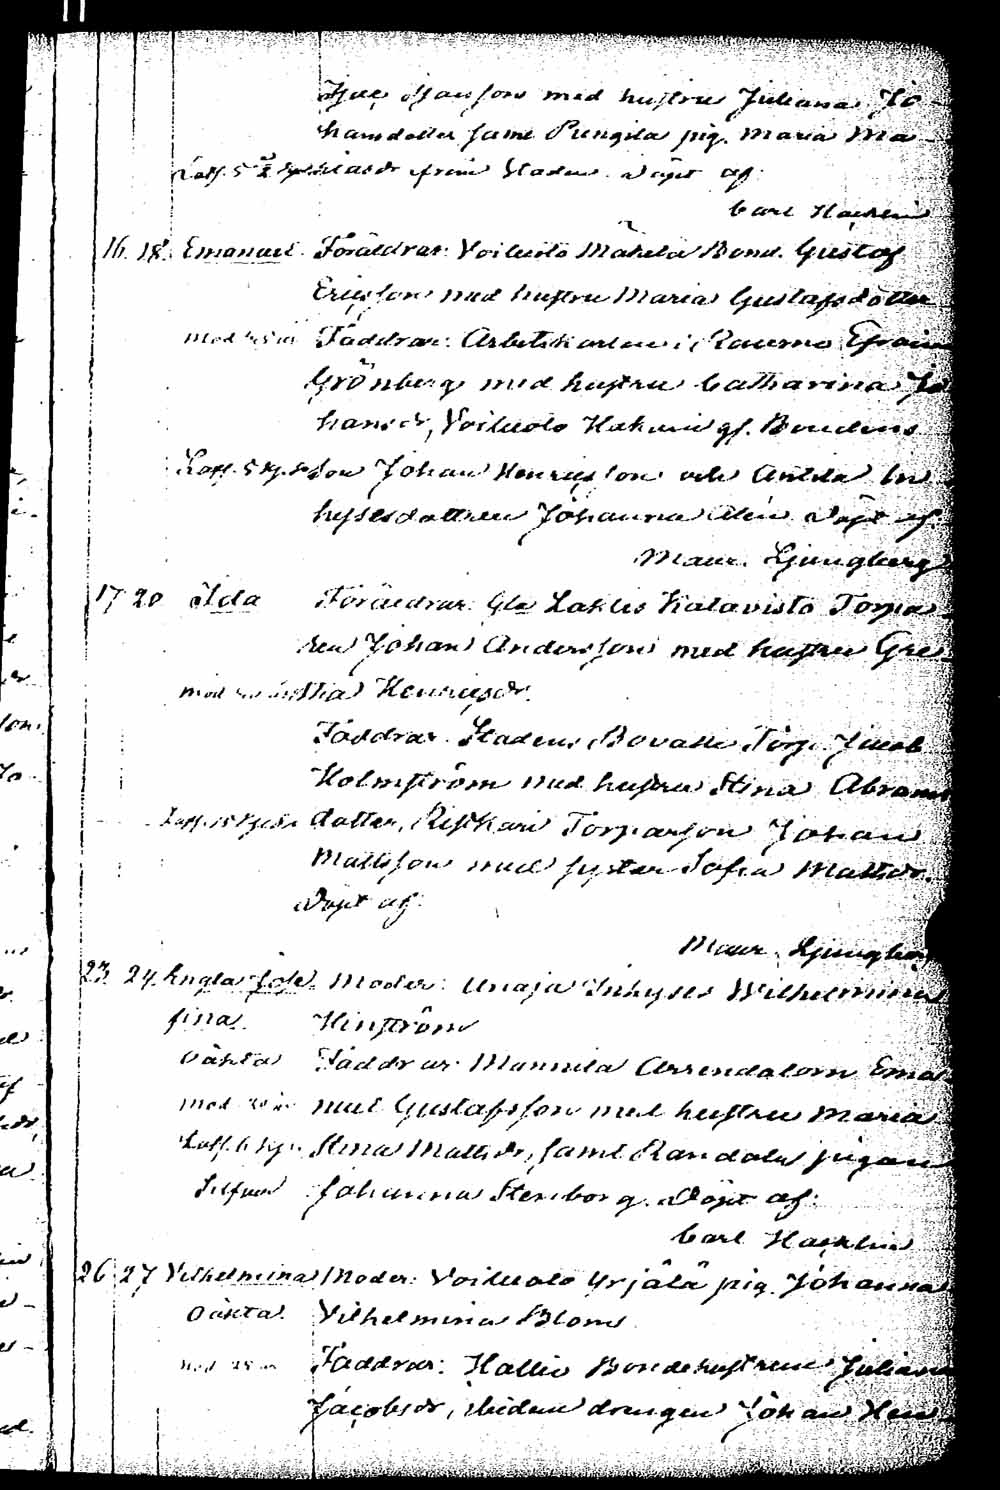 Isac Isacsson med hustru Juliana Jo-
hansdotter samt Pungila pig. Maria Ma-
från Staden. Döpt af:
Carl Hacklin
16. 18. Emanuel. Föräldrar: Voiluoto Mäkelä Bond. Gustaf
Ericsson med hustru Maria Gustafsdotter
mod. Faddrar: Arbetskarlen i Raumo Efraim
Grönberg med hustru Catharina Jo
hansdr, Voiluoto Hakuni gf. Bondens
son Johan Henricsson och Anttila In
hysesdottren Johanna Alén. Döpt af
Maur. Ljungberg
17 20 Ida Föräldrar: Gla Lahlis Katavisto Torpa-
ren Johan Andersson med hustru Gre-
mod. tha Henricsdr.
Faddrar: Stadens Torp. Jacob
Holmström med hustru Stina Abrams
dotter, Ristkari Torparson Johan
Mattsson med syster Sofia Mattsdr.
Döpt af:
Maur. Ljungberg
23. 24. Angla Jose- Moder: Unaja Inhyses Wilhelmina
fina. Hinström
Oäkta Faddrar: Mannila Arrendatorn Ema
mod. nuel Gustafsson med hustru Maria
Stina Mattsdr, samt Randala pigan
Johanna Stenborg. Döpt af:
Carl Hacklin
26 27 Vilhelmina Moder: Voiluoto Yrjälä pig. Johanna
Oäkta. Vilhelmina Blom
mod. Faddrar: Hallio Bondehustrun Juliana
Jacobsdr, ibidem drengen Johan Hen